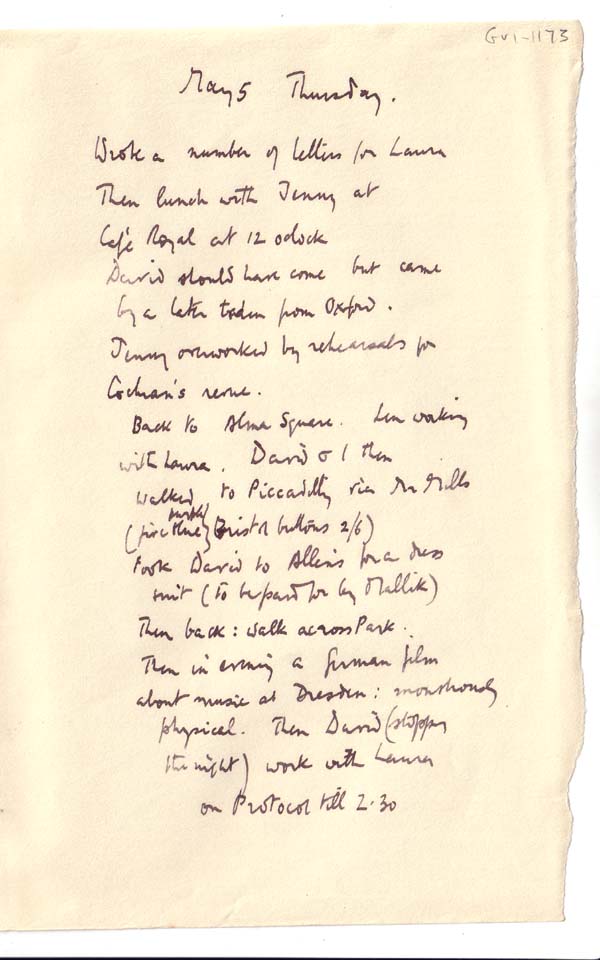 GV1-1173
May 5 Thursday.
Wrote a number of letters for Laura
Then lunch with Jenny at
Café Royal at 12 oclock
David should have come but came
by a later train from Oxford.
Jenny overworked by rehearsals for
Cochran's revue.
Back to Alma Square. Len working
with Laura. David & I then
walked to Piccadilly via Mr Mills
purple
(five blue Bristol buttons 2/6)
Took David to Allens for a dress
suit (to be paid for by Mallik)
Then back: walk across Park.
Then in evening a german film
about music at Dresden: monstrously
physical. Then David (stopping
the night) work with Laura
on Protocol till 2.30